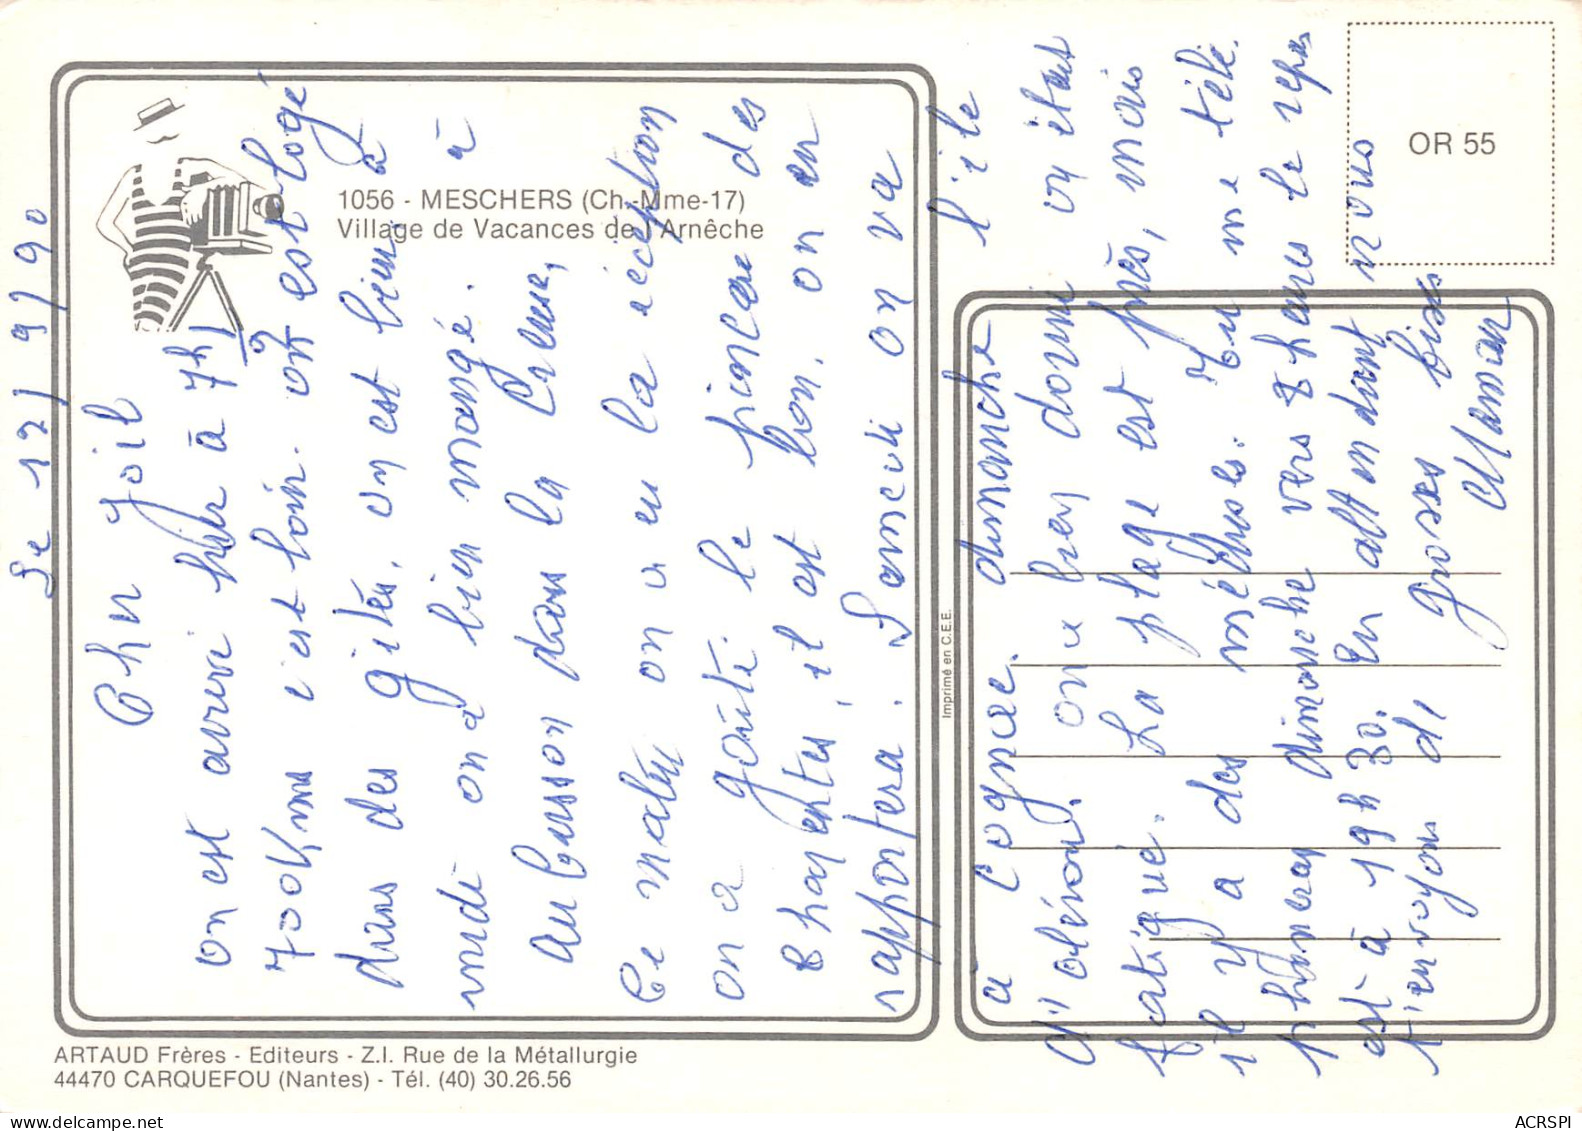 1056 - MESCHERS (Ch.-Mme-17)
Village de Vacances de l'Arnêche
OR 55
Le 12/9/90
Chu Joil
on est arrivé hier à 7h 1/2
700 Kms c'est loin. on est logé
dans des gités, on est bien. à
midi on a bien mangé. à
Aubusson dans la Creuse,
Ce matin on a eu la réception
on a gouté le pineau des
charentes, il est bon, on en
rapportera. Samedi on va
à Cognac. dimanche l'ile
d'oléron. on a bien dormi on était
fatigué. La plage est près, mais
il y a des méduses. Tu me télé
phoneras dimanche vers 8 heures le repas
est à 19h30. En attendant nous
t'envoyons de grosses bises
Maman
Imprimé en C.E.E.
ARTAUD Frères - Editeurs - Z.I. Rue de la Métallurgie
44470 CARQUEFOU (Nantes) - Tél. (40) 30.26.56
ACRSPI